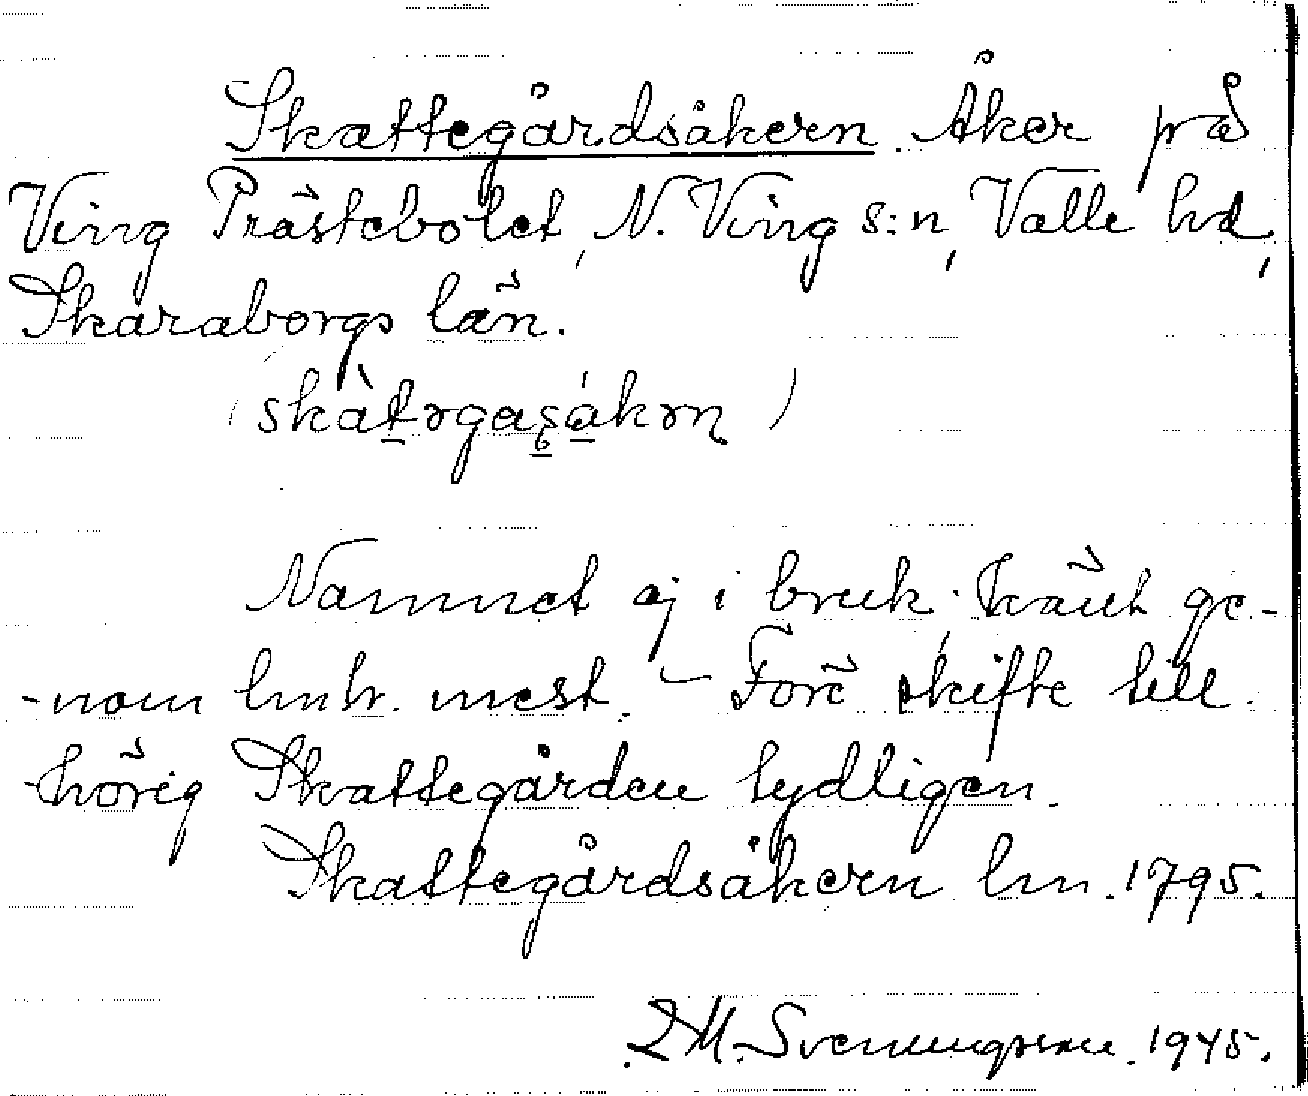 Skattegårdsåkern. Åker på
Ving Prästebolet, N. Ving s:n, Valle hd,
Skaraborgs län.
(skàt̲ərgaʂ̲á̲kərn)
Namnet ej i bruk; känt ge-
-nom lmtr. mest. - Före skifte till-
-hörig Skattegården tydligen.
Skattegårdsåkern lm. 1795.
L M. Svenungsson. 1945.